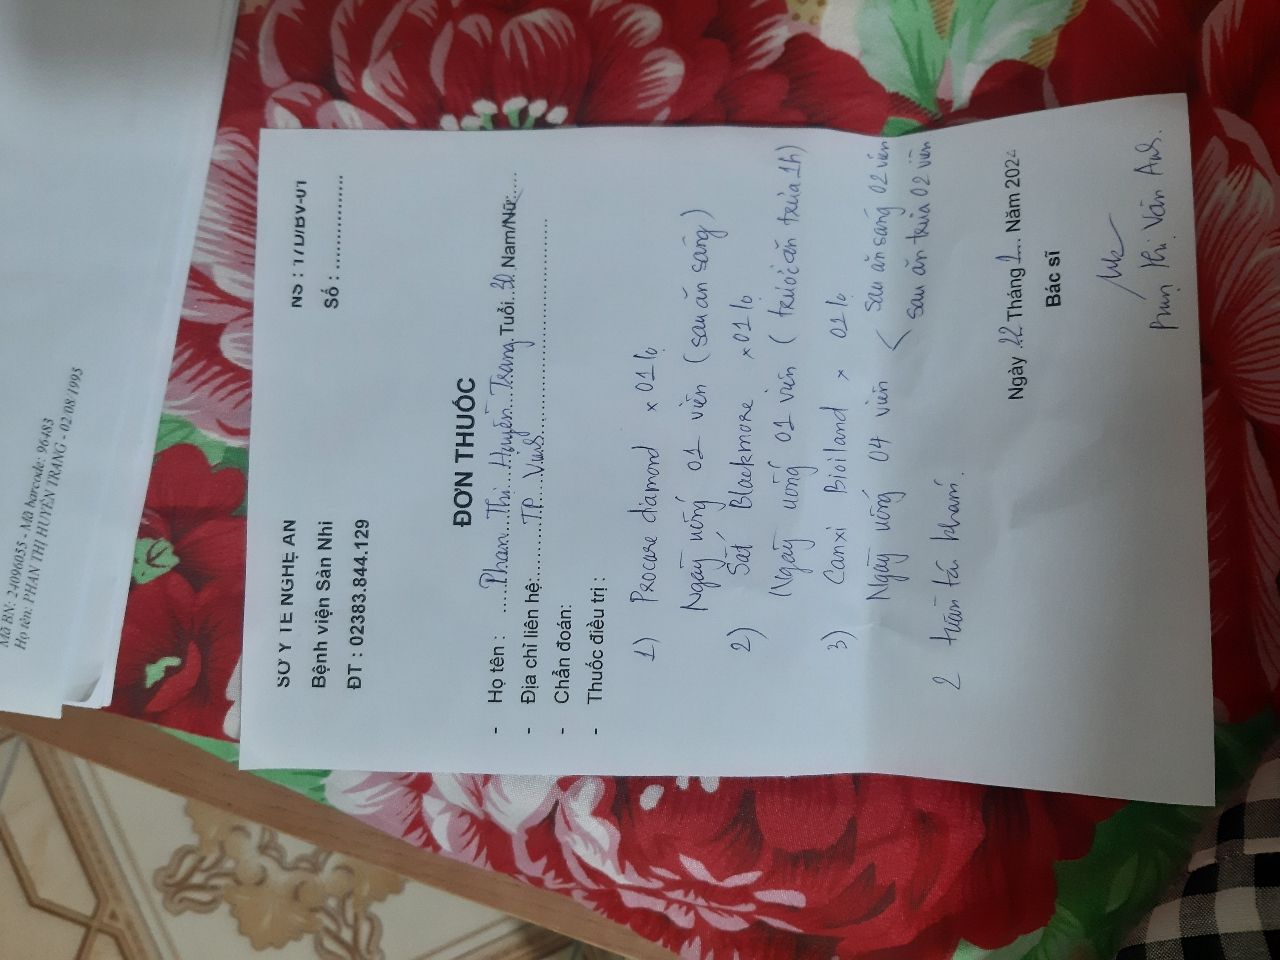 Mã BN: 24096055 - Mã barcode: 96483
Họ tên: PHAN THỊ HUYỀN TRANG - 02/08/1995
SỞ Y TẾ NGHỆ AN
Bệnh viện Sản Nhi
ĐT : 02383.844.129
MS : 17D/BV-01
Số : ..................
ĐƠN THUỐC
- Họ tên : .....Phan...Thị...Huyền...Trang.Tuổi..30 Nam/Nữ:....
- Địa chỉ liên hệ:..........TP...Vinh..........
- Chẩn đoán:
- Thuốc điều trị :
1) Procare diamond x 01 lọ
Ngày uống 01 viên (sau ăn sáng)
2) Sắt Blackmore x 01 lọ
(Ngày uống 01 viên (trước ăn trưa 1h)
3) Canxi Bioiland x 01 lọ
Ngày uống 04 viên < sau ăn sáng 02 viên
sau ăn trưa 02 viên
2 tuần tái khám.
Ngày 22 Tháng ... Năm 202
Bác sĩ
Thị Vân Anh.